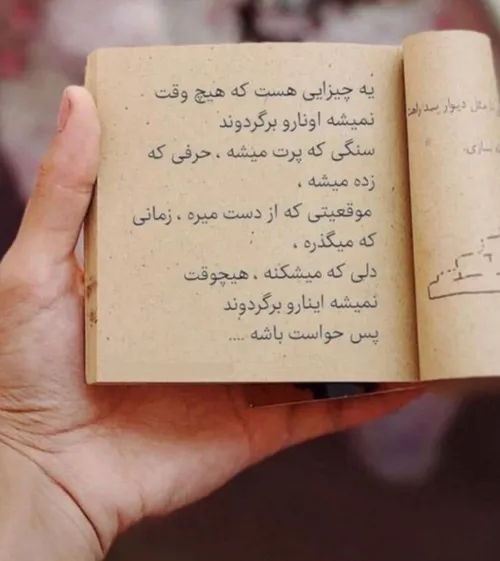 یه چیزایی هست که هیچ وقت
نمیشه اونارو برگردوند
سنگی که پرت میشه ، حرفی که
زده میشه ،
موقعیتی که از دست میره ، زمانی
که میگذره ،
دلی که میشکنه ، هیچوقت
نمیشه اینارو برگردوند
پس حواست باشه ....
مثل دیوار
سازی.